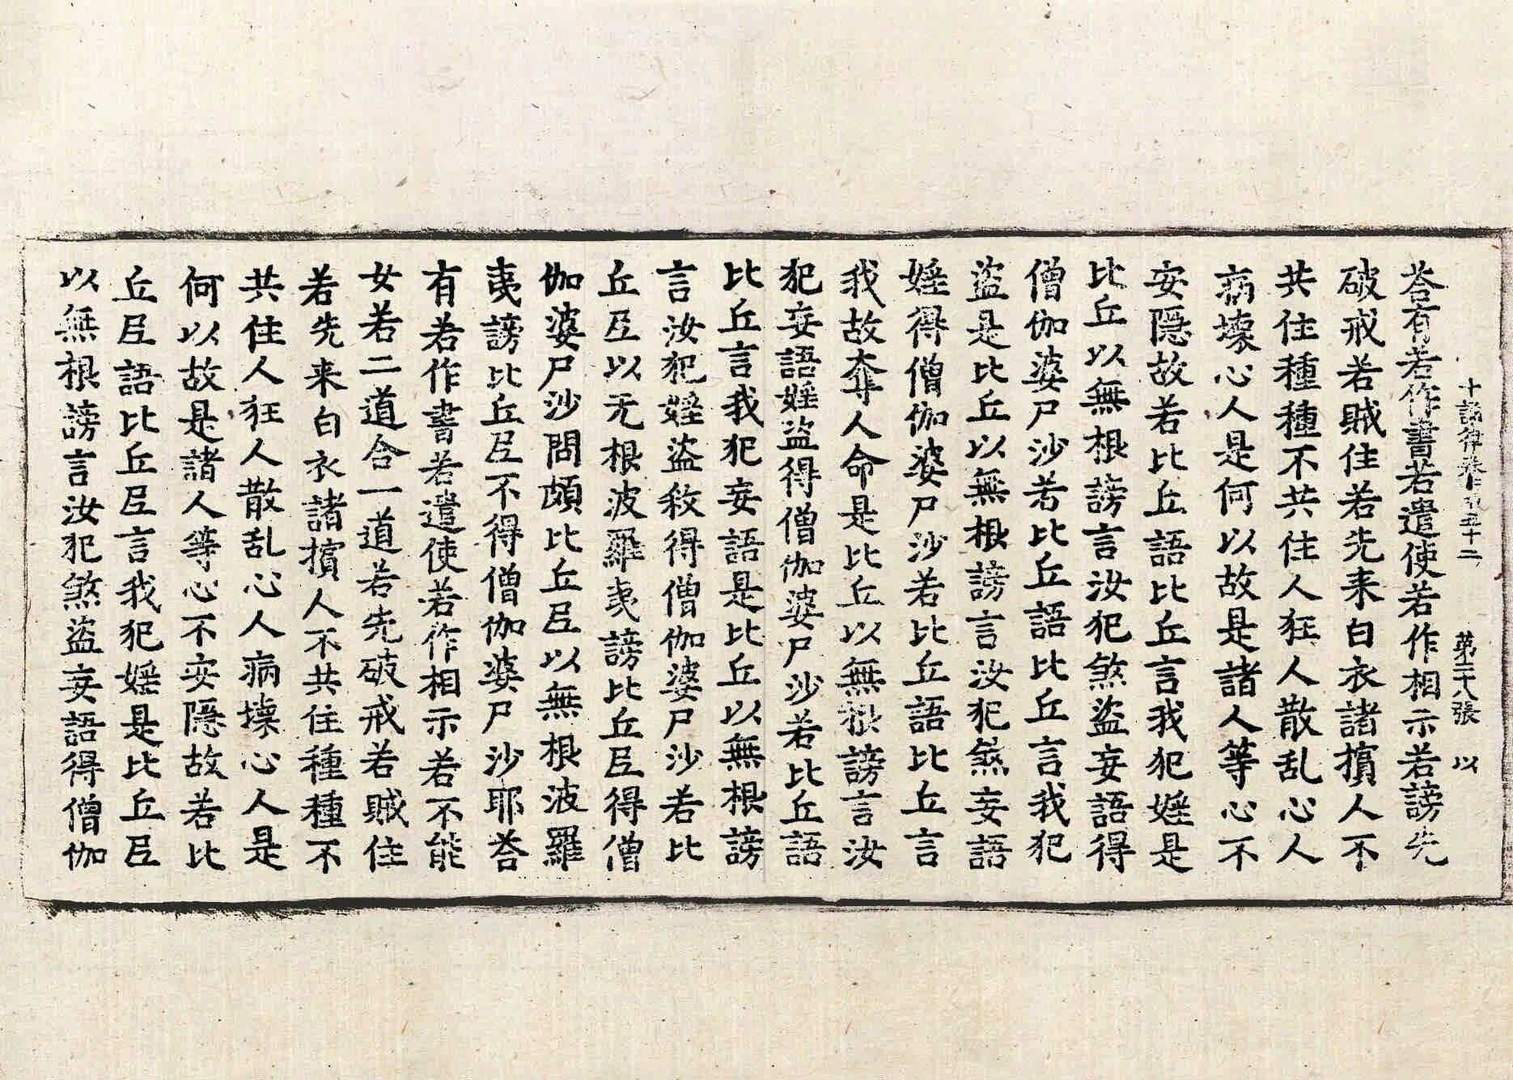 十誦律卷第五十二 第二十八張 以
荅有若作書若遣使若作相示若謗先
破戒若賊住若先来白衣諸擯人不
共住種種不共住人狂人散乱心人
病壞心人是何以故是諸人等心不
安隱故若比丘語比丘言我犯婬是
比丘以無根謗言汝犯煞盜妄語得
僧伽婆尸沙若比丘語比丘言我犯
盜是比丘以無根謗言汝犯煞妄語
婬得僧伽婆尸沙若比丘語比丘言
我故奪人命是比丘以無根謗言汝
犯妄語婬盜得僧伽婆尸沙若比丘語
比丘言我犯妄語是比丘以無根謗
言汝犯婬盜煞得僧伽婆尸沙若比
丘尼以无根波羅夷謗比丘尼得僧
伽婆尸沙問頗比丘尼以無根波羅
夷謗比丘尼不得僧伽婆尸沙耶荅
有若作書若遣使若作相示若不能
女若二道合一道若先破戒若賊住
若先来白衣諸擯人不共住種種不
共住人狂人散乱心人病壞心人是
何以故是諸人等心不安隱故若比
丘尼語比丘尼言我犯婬是比丘尼
以無根謗言汝犯煞盜妄語得僧伽